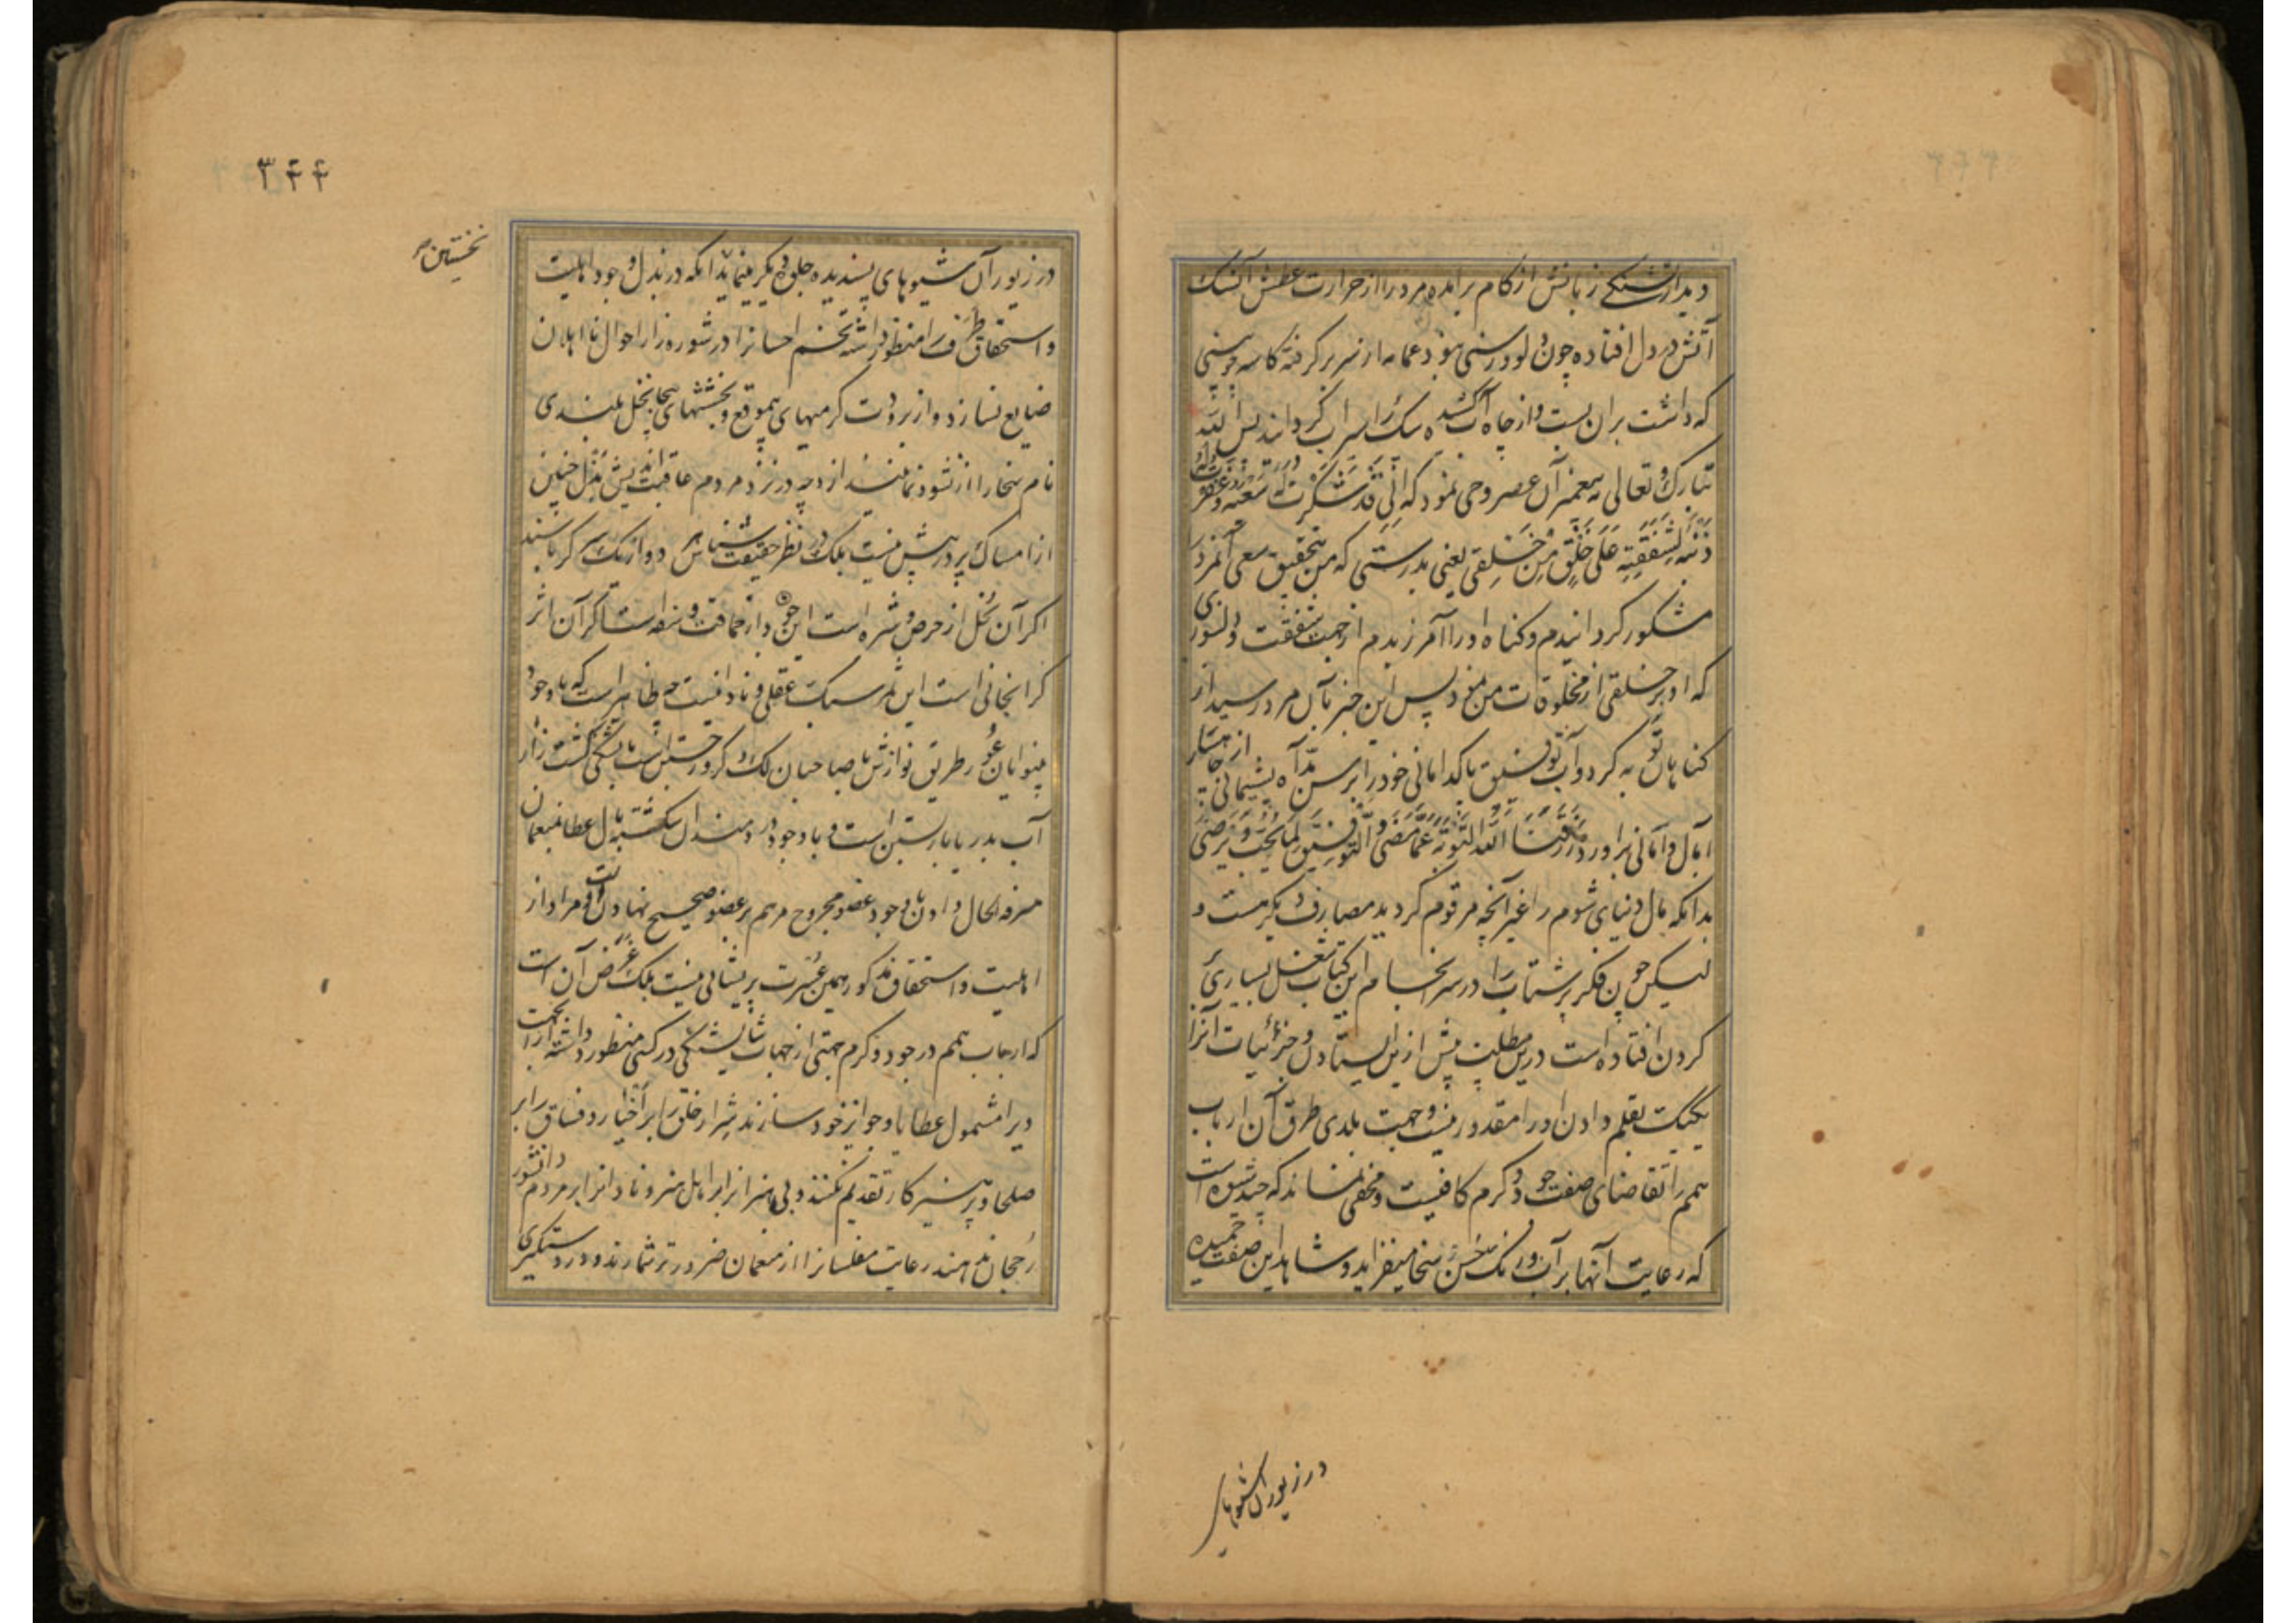 دید از تشنگی زبانش از کام برآمده مرد را از حرارت عطش آن سگ
آتش در دل افتاده چون دلو و رسنی نبود عمامه از سر بر گرفته کاسه چوبینی
که داشت بران بست و از چاه آب کشیده سگ را سیراب گردانید پس الله
تبارک و تعالی به پیغمبر آن عصر وحی نمود که اِنّی قَد شَکَرتُ لَهُ سَعیَهُ وَ غَفَرتُ لَهُ
ذَنبَهُ لِشَفَقَتِهِ عَلَی خَلقٍ مِن خَلقِی یعنی بدرستی که من بتحقیق سعی آنمرد
مشکور گردانیدم و گناه او را آمرزیدم از جهت شفقت و دلسوزی
که او بر خلقی از مخلوقات من نمود پس این خبر بآن مرد رسید از
گناهان توبه کرد و آب توفیق پاکدامانی خود را برسن مدّ آه پشیمانی از چاهسار
آمال و امانی برآورد رَزَقَنَا اللهُ التَّوبَةَ عَمَّا مَضَی وَ التَّوفِیقَ لِمَا یُحِبُّ وَ یَرضَی
بدانکه مال دنیای شوم را غیر آنچه مرقوم گردید مصارف دیگر هست و
لیکن چون فکر پر شتاب را در سرانجام این کتاب شغل بسیاری
کردن افتاده است درین مطلب پیش ازین ایستادن و جزئیات آنرا
یکیک بقلم دادن او را مقدور نیست و جهت بلدی طرق آن ارباب
همم را تقاضای صفت جود و کرم کافیست و مخفی نماند که چند شیوه است
که رعایت آنها بر آب و رنگ حُسن سخا میفزاید و شاهد این صفت حمیده
در زیور آن شیوهای
۳۴۴
در زیور آن شیوهای پسندیده جلوهٔ دیگر مینماید بدانکه در بذل و جود اهلیت
و استحقاق طَرَف را منظور داشته تخم احسانرا در شوره‌زار احوال نااهلان
ضایع نسازد و از برودت کرمیهای بیموقع و بخششهای بیجا نخل بلندی
نام سخا را از نشو و نما نیندازد چه در نزد مردم عاقبت اندیش بذل چنین
از امساک پر در پیش نیست بلکه در نظر حقیقت شناس هر دو از یک سر کرباسند
اگر آن بُخل از حرص و شره است این جود از حماقت و سفه است اگر آن اثر
گرانجانی است این ثمر سبک عقلی و نادانیست چه ظاهر است که با وجود
بینوایان عُور طریق نوازش با صاحبان لک و کرور جستن است با تشنگی کشت زار
آب بدریا بار بستن است و با وجود دردمندان شکسته بال عطا بمنعمان
مرفه الحال دادن با وجود عضو مجروح مرهم بر عضو صحیح نهادن است و مراد از
اهلیت و استحقاق مذکور همین عُسرت و پریشانی نیست بلکه غَرَض آن است
که ارباب همم در جود و کرم جهتی از جهات شایستگی در کسی منظور داشته از آنجهت
ویرا مشمول عطایا و جوایز خود سازند شِرار خلق را بر اَخیار و فساق را بر
صلحا و پرهیزکار تقدیم نکنند و بی هنرانرا بر اهل هنر و نادانرا بر مردم دانشور
رُجحان ندهند رعایت مفلسانرا از منعمان ضرورتر شمارند و در دستگیری
نخستین